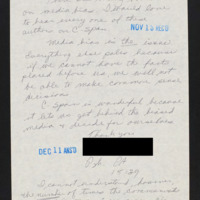 on media bias. I would love
to hear every one of these
authors on C-Span.
NOV 13 REC'D
Media bias is the issue.
Everything else pales because
if we cannot have the facts
placed before us, we will not
be able to make common sense
decisions.
C Span is wonderful because
it lets us get behind the
media & decide for ourselves
Thank you
DEC 11 ANS'D
I cannot understand, however,
the number of times the